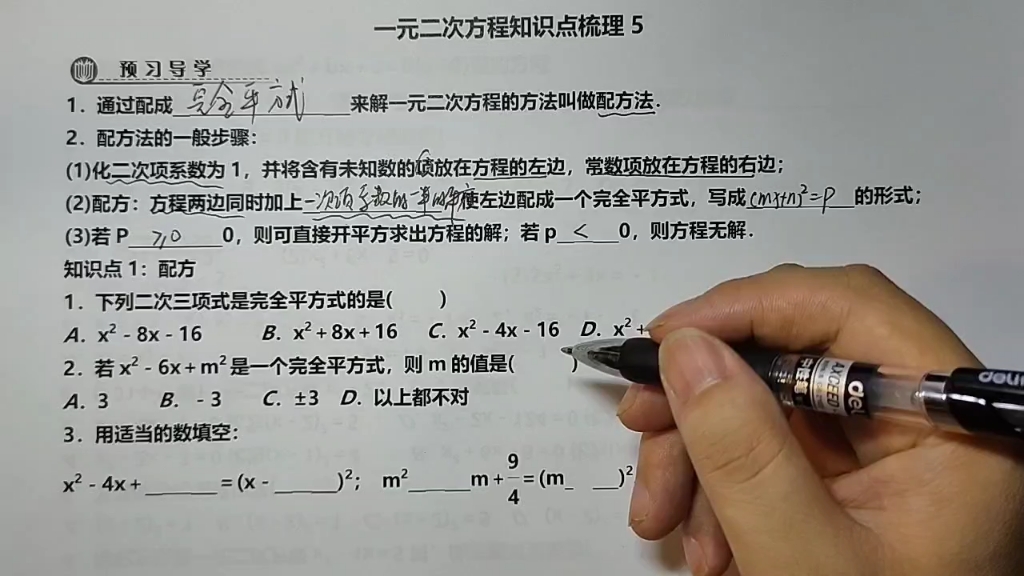 一元二次方程知识点梳理 5
预习导学
1. 通过配成 完全平方式 来解一元二次方程的方法叫做配方法.
2. 配方法的一般步骤:
(1)化二次项系数为 1，并将含有未知数的项放在方程的左边，常数项放在方程的右边；
(2)配方：方程两边同时加上一次项系数的一半的平方使左边配成一个完全平方式，写成(mx+n)²=P 的形式；
(3)若 P ≥0 0，则可直接开平方求出方程的解；若 p < 0，则方程无解.
知识点 1：配方
1. 下列二次三项式是完全平方式的是( )
A. x² - 8x - 16 B. x² + 8x + 16 C. x² - 4x - 16 D. x² +
2. 若 x² - 6x + m² 是一个完全平方式，则 m 的值是( )
A. 3 B. - 3 C. ±3 D. 以上都不对
3. 用适当的数填空:
x² - 4x + ______ = (x - ______)²; m²______m + 9/4 = (m_ __)²
deli